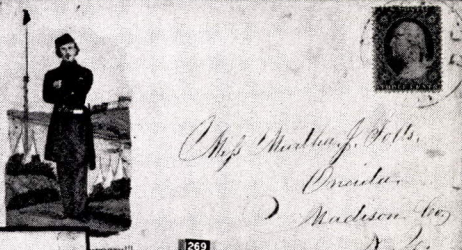 Miss Martha J. Potts,
Oneida,
Madison Co,
N.Y.
269